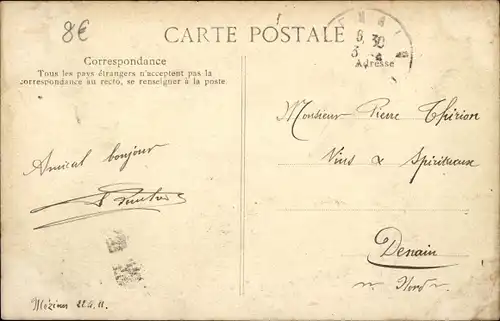 8€
CARTE POSTALE
Correspondance
Tous les pays étrangers n'acceptent pas la
correspondance au recto, se renseigner à la poste.
Amical bonjour
Mézières 22.4.11.
9.30
Adresse
Monsieur Pierre Thirion
Vins & Spiritueux
Denain
Nord